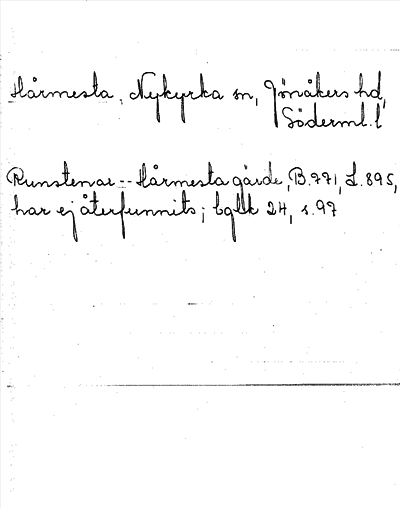 Hårmesta, Nykyrka sn, Jönåkers hd,
Söderml. l
Runstenar -- Hårmesta gärde, B. 771, L. 895,
har ej återfunnits; bgllk 24, s. 97